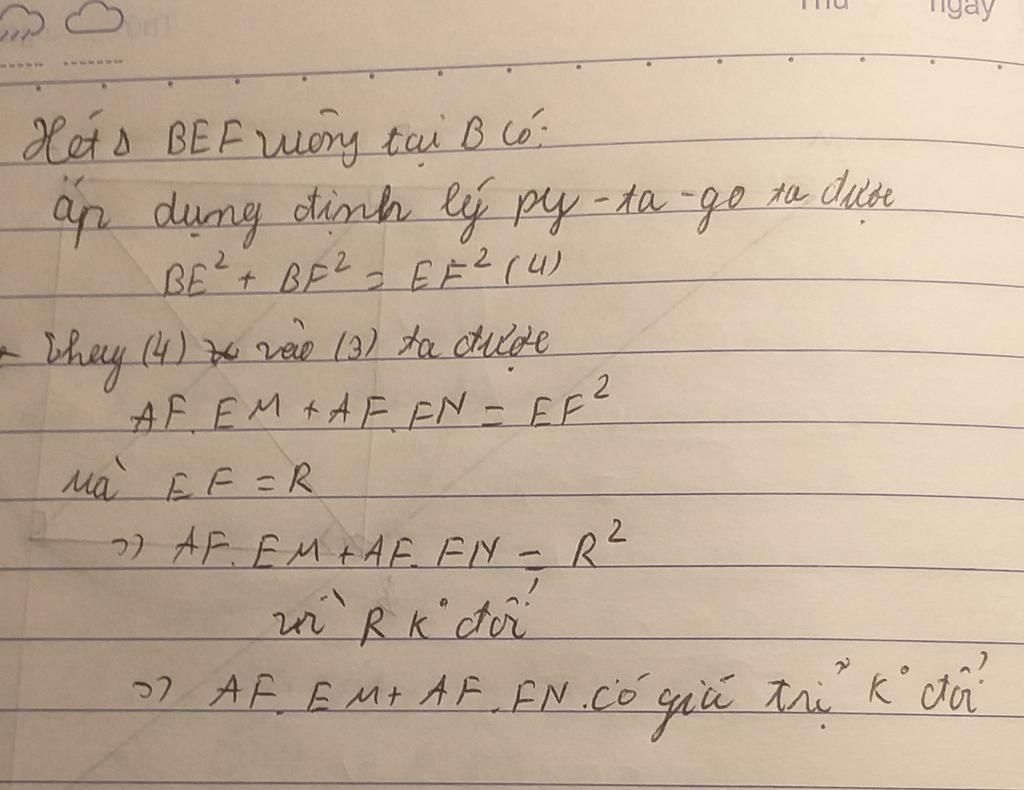 Thứ ngày
Xét Δ BEF vuông tại B có:
áp dụng định lý py-ta-go ta được
BE² + BF² = EF² (4)
- Thay (4) vào (3) ta được
AF. EM + AF. FN = EF²
Mà EF = R
=> AF. EM + AF. FN = R²
vì R k° đổi
=> AF. EM + AF. FN có giá trị k° đổi